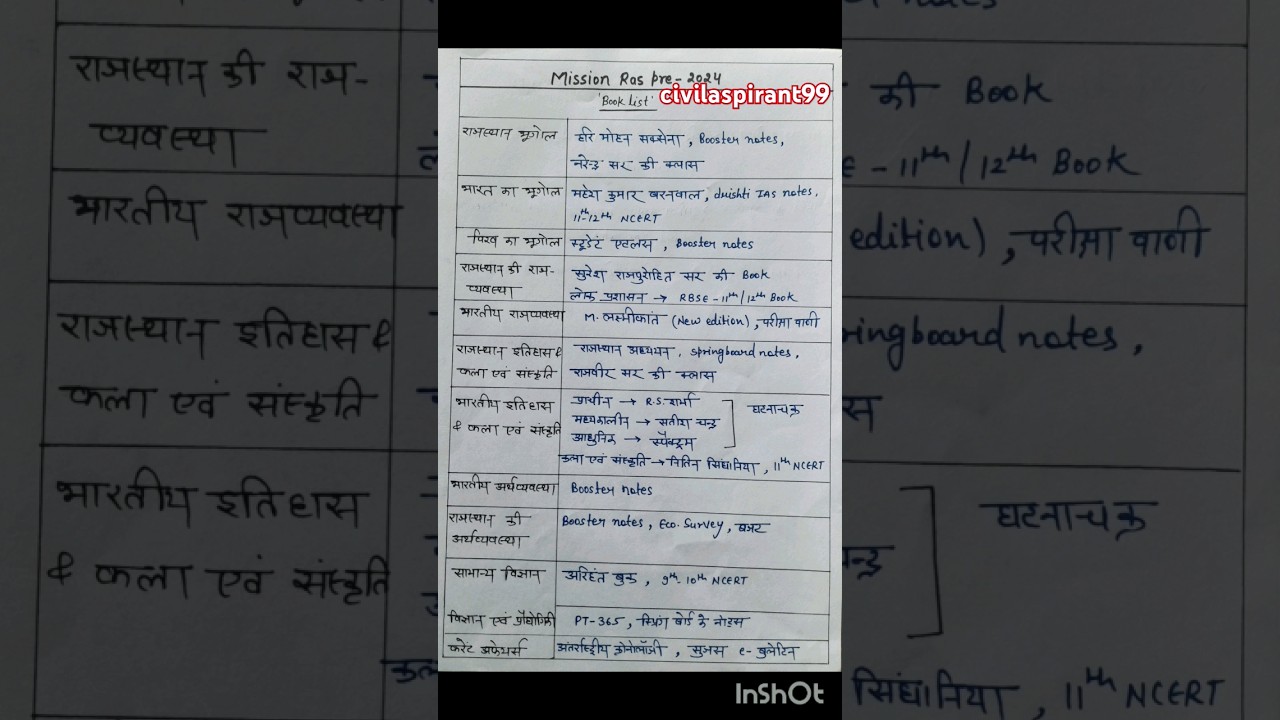 Mission Ras Pre-2024
civilaspirant99
'Book list'
राजस्थान भूगोल
हरि मोहन सक्सेना, Booster notes,
नरेन्द्र सर की क्लास
भारत का भूगोल
महेश कुमार बरनवाल, drishti IAS notes,
11th-12th NCERT
विश्व का भूगोल
स्टूडेंट एटलस, Booster notes
राजस्थान की राज-
व्यवस्था
सुरेश राजपुरोहित सर की Book
लोक प्रशासन → RBSE - 11th/12th Book
भारतीय राजव्यवस्था
M. लक्ष्मीकांत (New edition), परीक्षा वाणी
राजस्थान इतिहास &
कला एवं संस्कृति
राजस्थान अध्ययन, springboard notes,
राजवीर सर की क्लास
भारतीय इतिहास
& कला एवं संस्कृति
प्राचीन → R.S. शर्मा
मध्यकालीन → सतीश चन्द्र
आधुनिक → स्पेक्ट्रम
घटनाचक्र
कला एवं संस्कृति → नितिन सिंघानिया, 11th NCERT
भारतीय अर्थव्यवस्था
Booster notes
राजस्थान की
अर्थव्यवस्था
Booster notes, Eco. Survey, बजट
सामान्य विज्ञान
अरिहंत बुक, 9th-10th NCERT
विज्ञान एवं प्रौद्योगिकी
PT-365, स्प्रिंग बोर्ड के नोट्स
करेंट अफेयर्स
अंतर्राष्ट्रीय क्रोनोलॉजी, सुजस e-बुलेटिन
InShOt